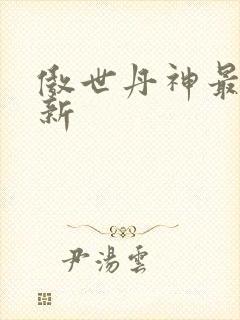 傲世丹神最
新
尹湯雲